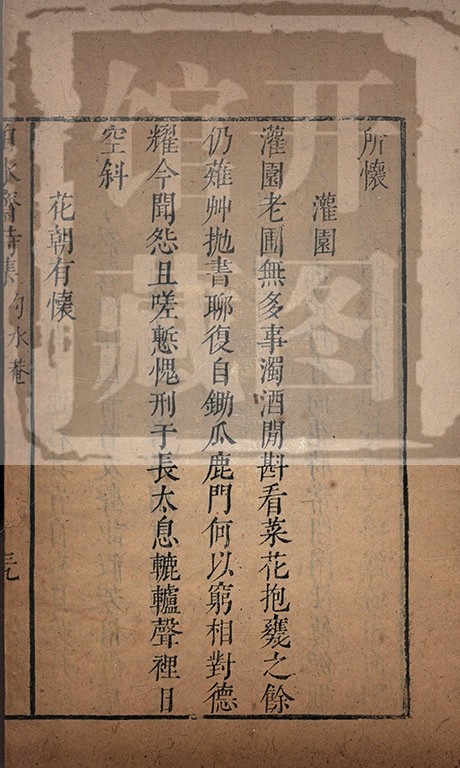 所懷
灌園
灌園老圃無多事濁酒閒斟看菜花抱甕之餘
仍薙艸抛書聊復自鋤瓜鹿門何以窮相對德
耀今聞怨且嗟慙愧刑于長太息轆轤聲裡日
空斜
花朝有懷
水齋詩集
水菴
开图
馆藏